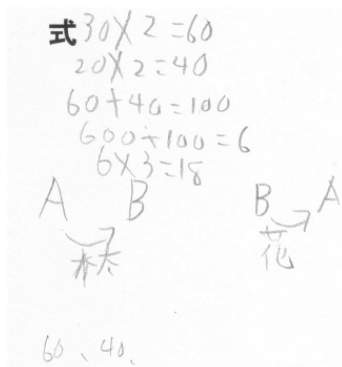 式 30×2=60
20×2=40
60+40=100
600÷100=6
6×3=18
A B B A
花
60、40、